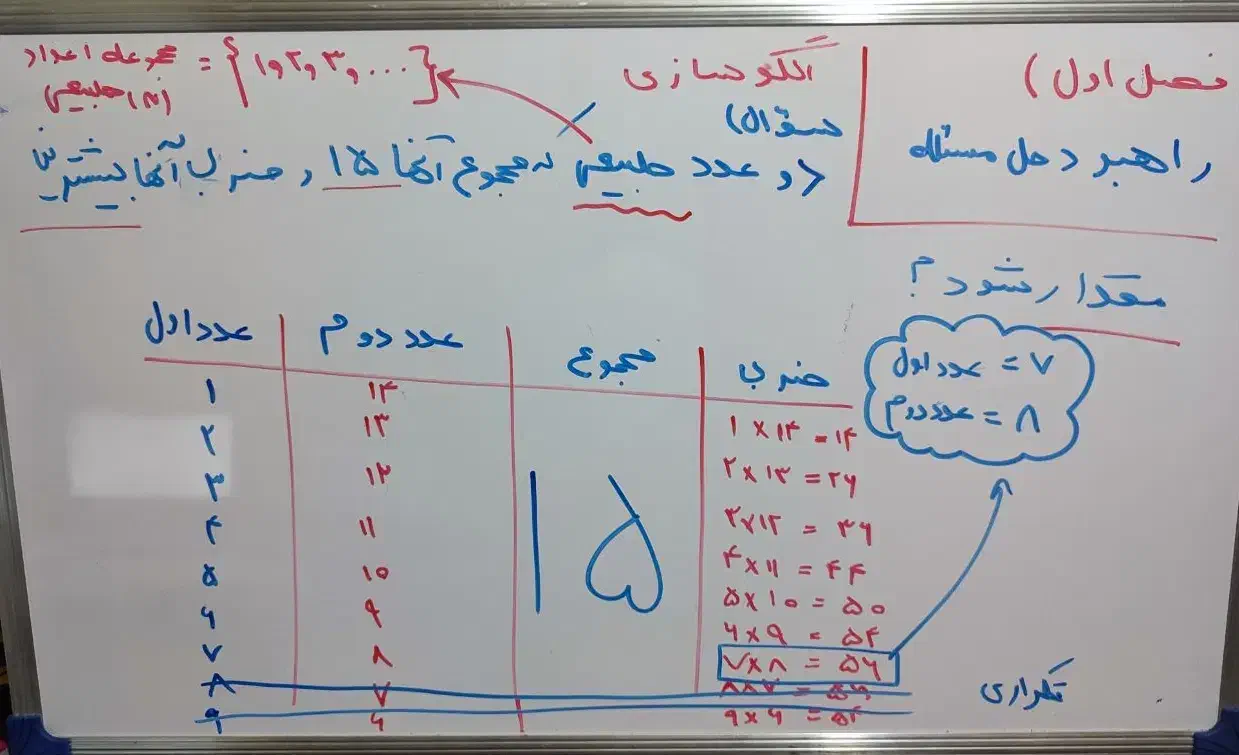 فصل اول)
راهبرد حل مسئله
الگوسازی
مجموعه اعداد طبیعی (N) = {۱,۲,۳,...}
سؤال)
دو عدد طبیعی که مجموع آنها ۱۵ و ضرب آنها بیشترین
مقدار شود؟
عدد اول = ۷
عدد دوم = ۸
عدد اول عدد دوم مجموع ضرب
۱ ۱۴ ۱ × ۱۴ = ۱۴
۲ ۱۳ ۲ × ۱۳ = ۲۶
۳ ۱۲ ۳ × ۱۲ = ۳۶
۴ ۱۱ ۴ × ۱۱ = ۴۴
۵ ۱۰ ۵ × ۱۰ = ۵۰
۶ ۹ ۶ × ۹ = ۵۴
۷ ۸ ۷ × ۸ = ۵۶
۸ ۷ ۸ × ۷ = ۵۶
۹ ۶ ۹ × ۶ = ۵۴
۱۵
تکراری